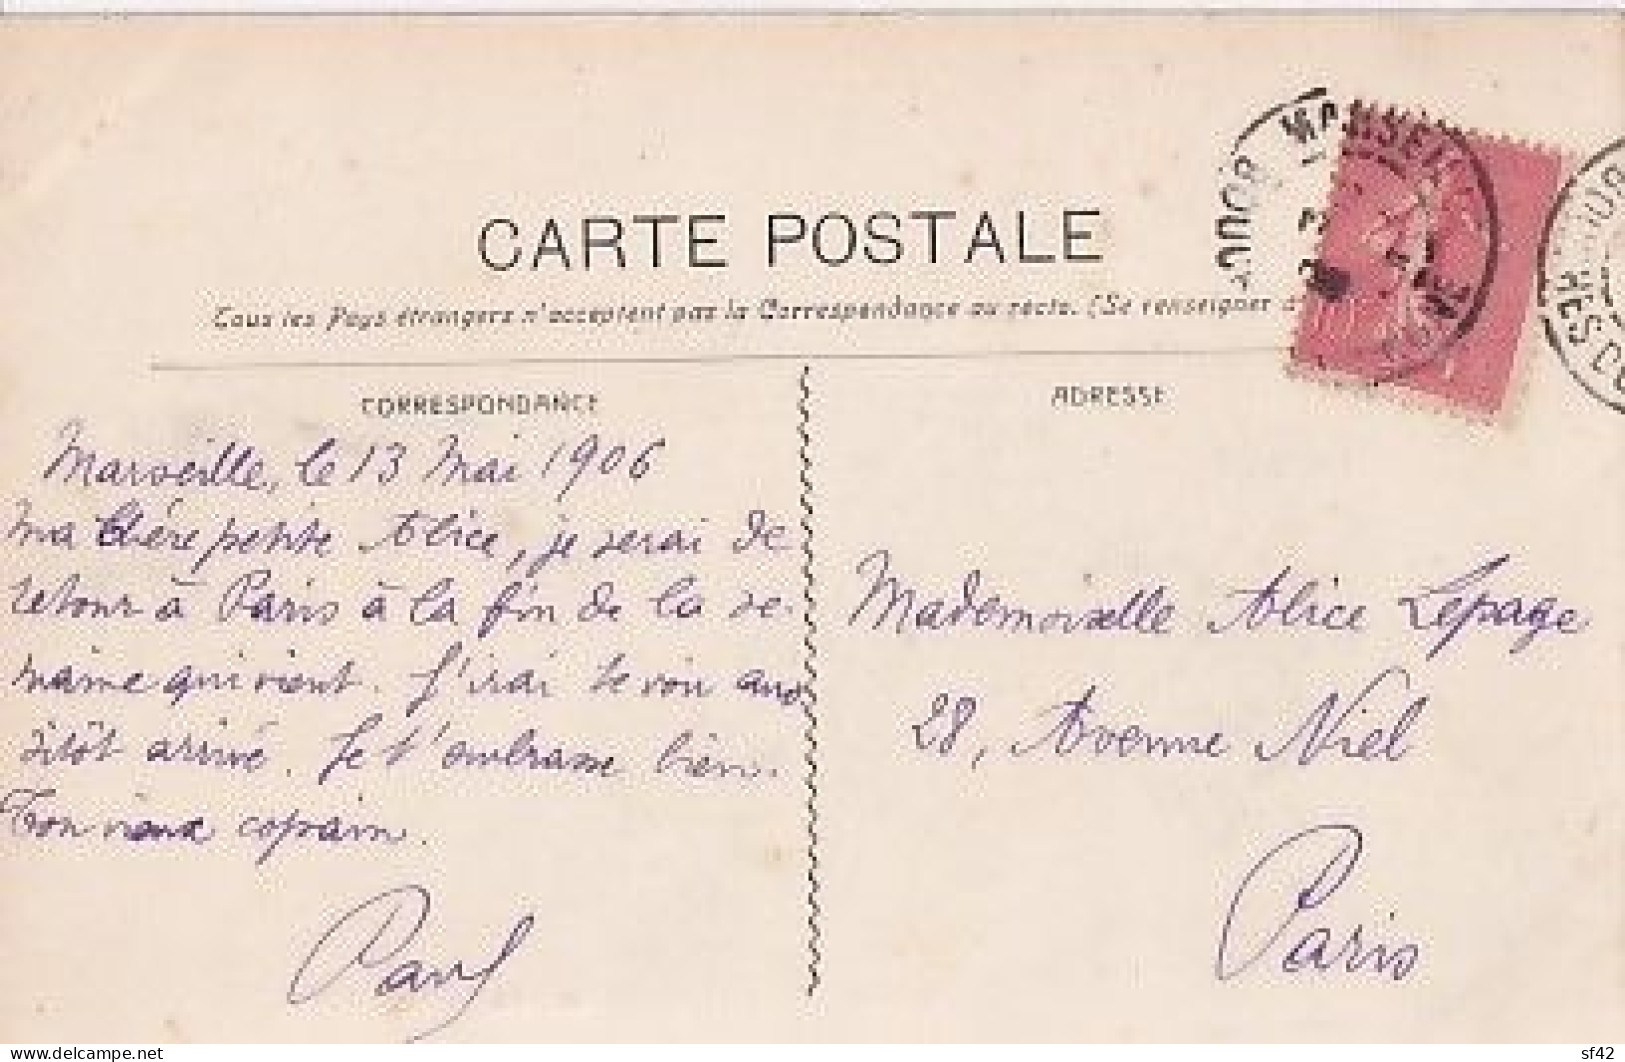 CARTE POSTALE
Tous les Pays étrangers n'acceptent pas la Correspondance au recto. (Se renseigner
CORRESPONDANCE
ADRESSE
Marseille, le 13 Mai 1906
Ma chère petite Alice, je serai de
retour à Paris à la fin de la se-
maine qui vient. J'irai te voir aus
sitôt arrivé. Je t'embrasse bien.
Ton vieux copain.
Paul
Mademoiselle Alice Lepage
28, Avenue Niel
Paris
MARSEILLE
BOUCH
RHONE
BOU
HES DU
delcampe.net
sf42